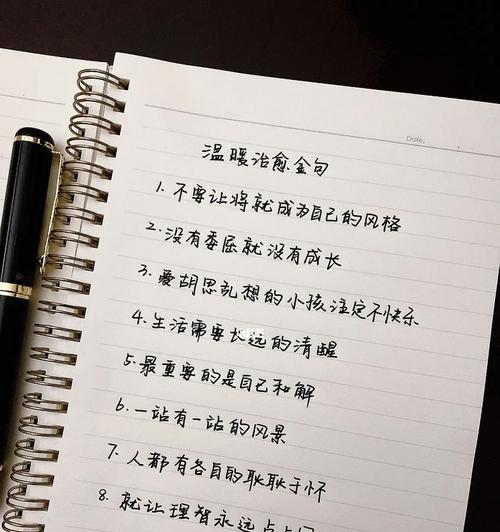 Date.
温暖治愈金句
1. 不要让将就成为自己的风格
2. 没有委屈就没有成长
3. 爱胡思乱想的小孩注定不快乐
4. 生活需要长远的清醒
5. 最重要的是自己和解
6. 一站有一站的风景
7. 人都有各自的耿耿于怀
8. 就让理智永远占上风